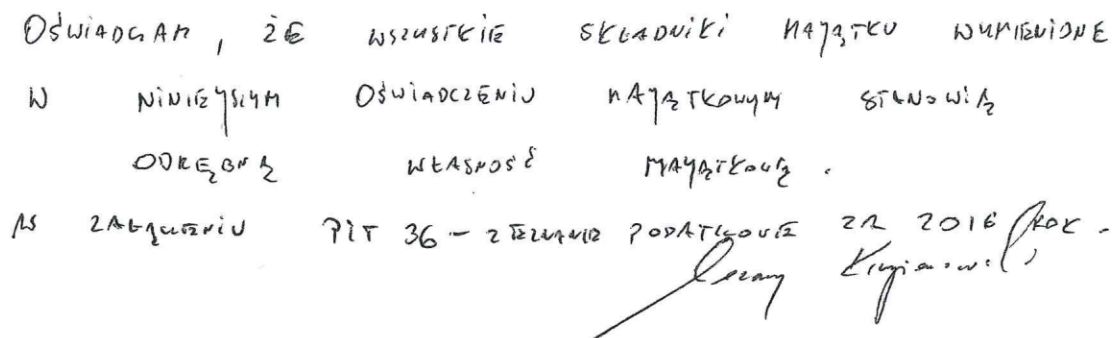 OŚWIADCZAM, ŻE WSZYSTKIE SKŁADNIKI MAJĄTKU WYMIENIONE
W NINIEJSZYM OŚWIADCZENIU MAJĄTKOWYM STANOWIĄ
ODRĘBNĄ WŁASNOŚĆ MAJĄTKOWĄ.
W ZAŁĄCZENIU PIT 36 - ZEZNANIE PODATKOWE ZA 2016 ROK.
Cezary